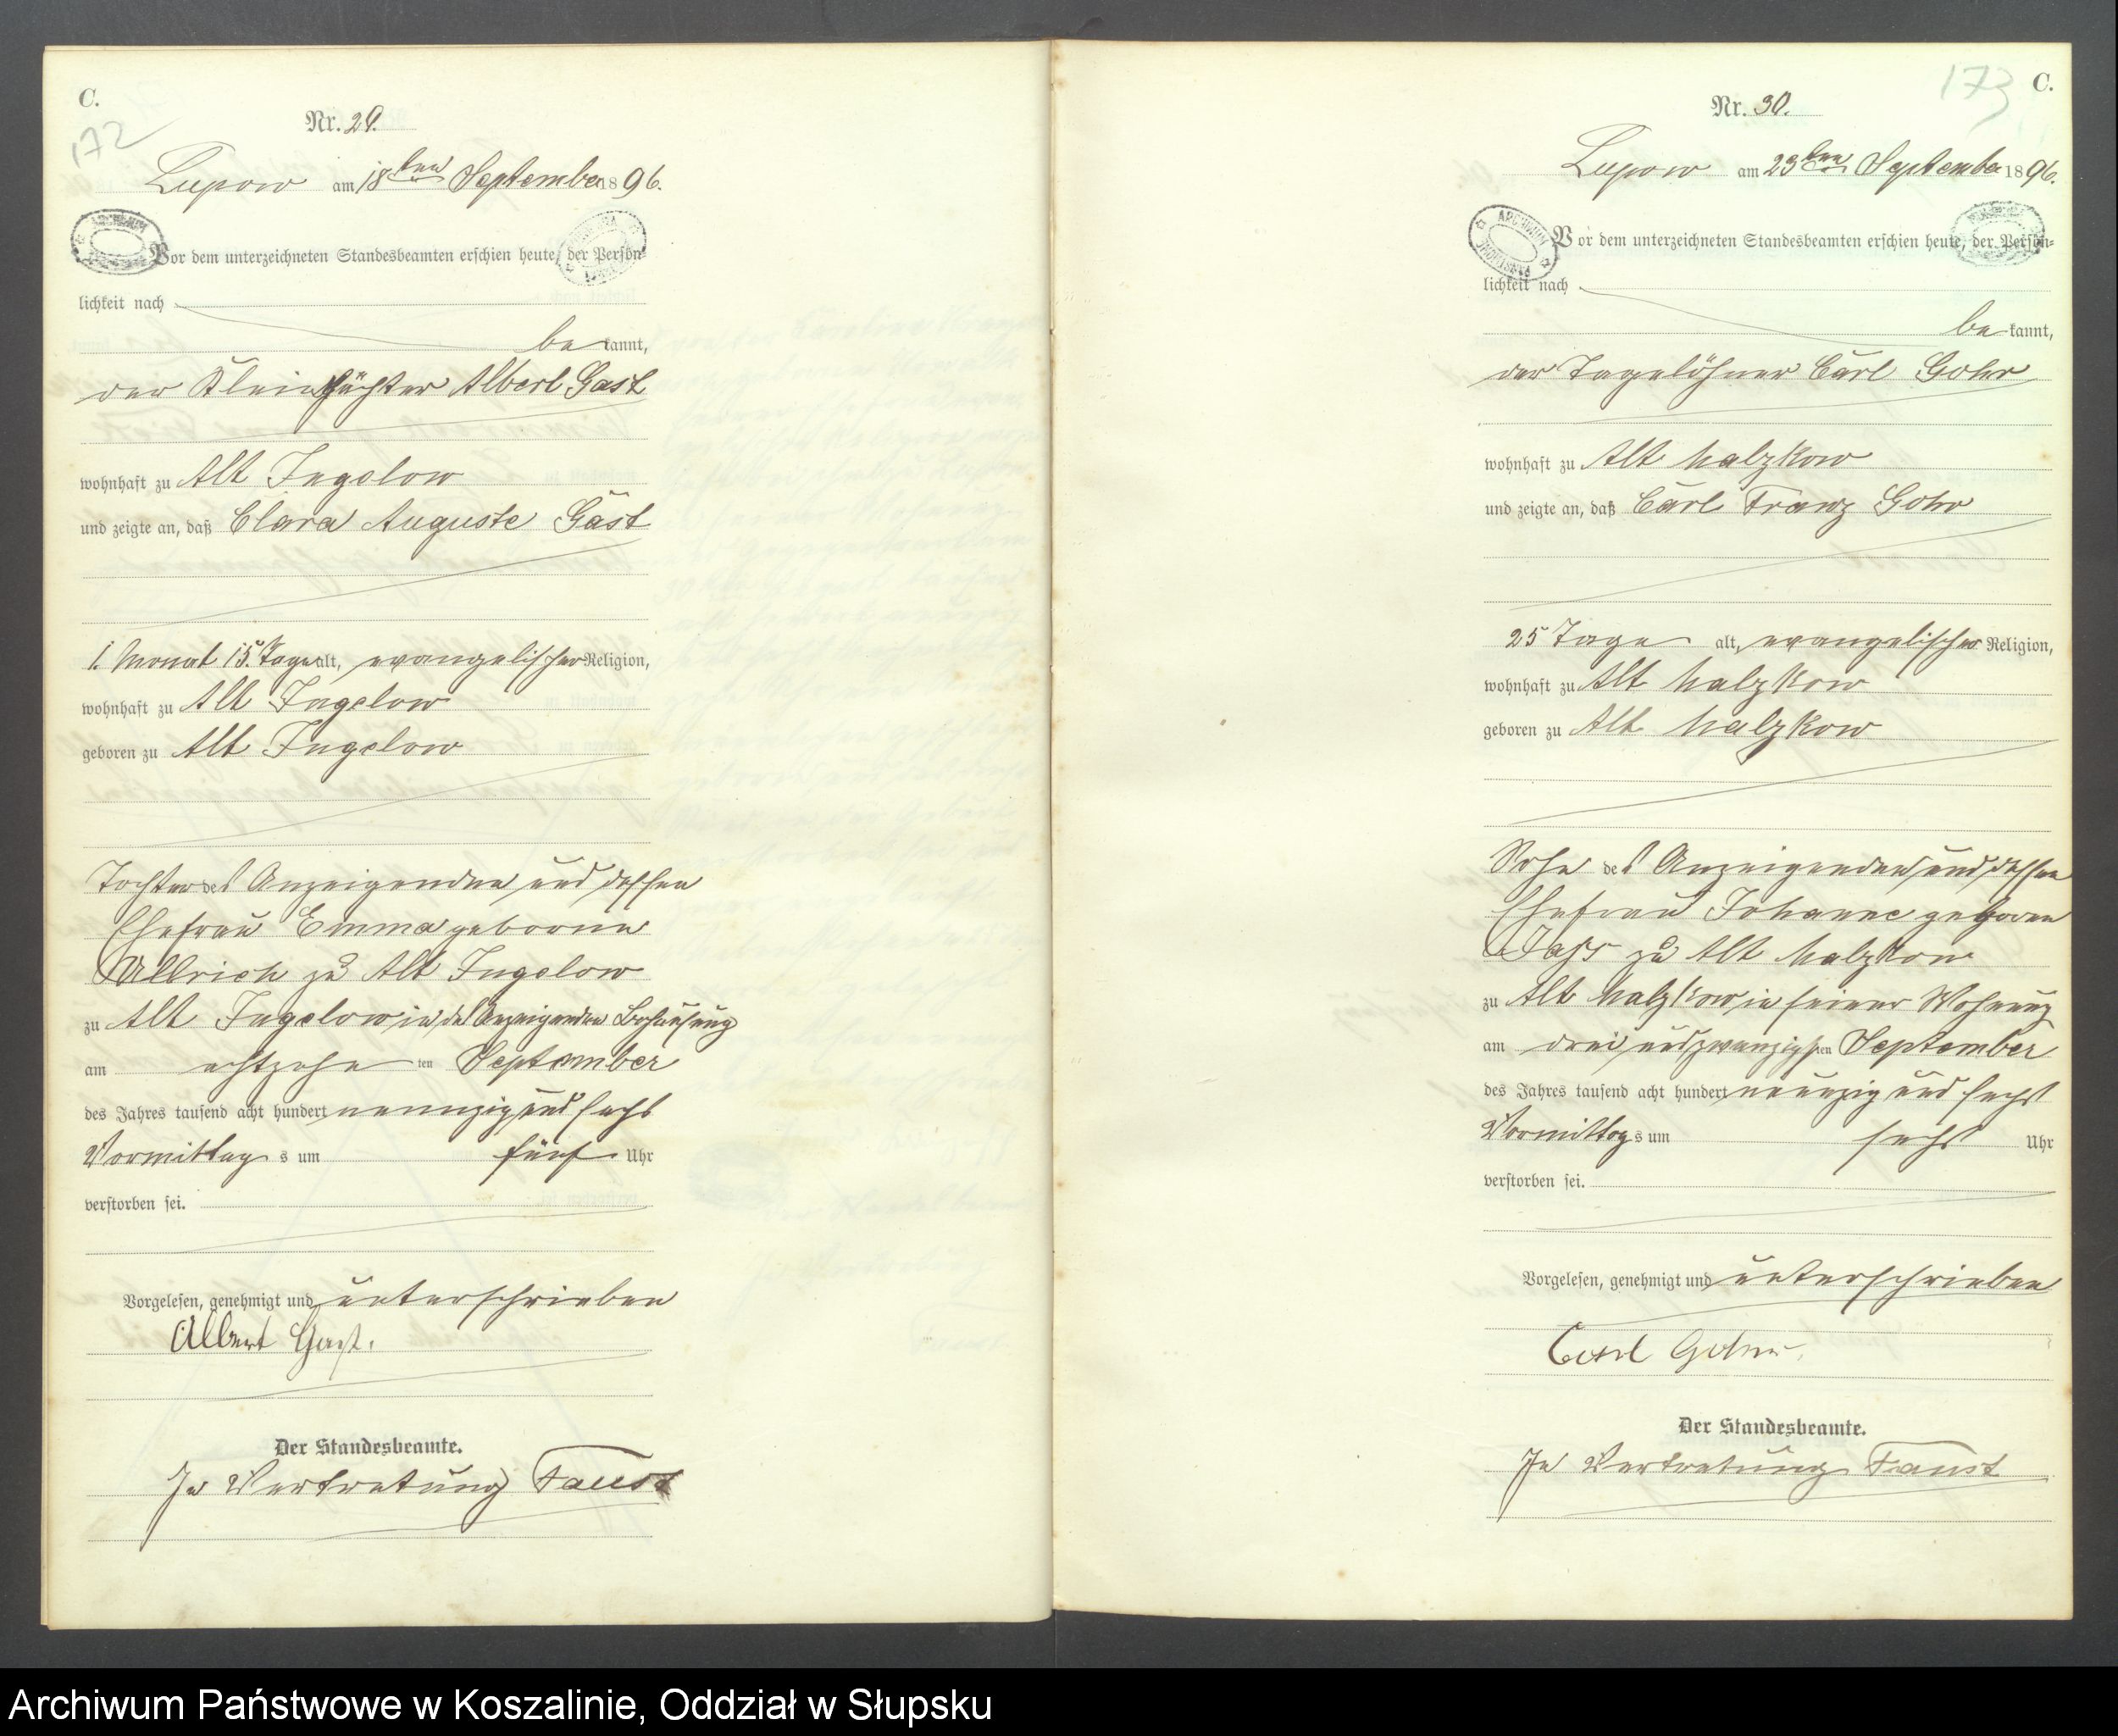 C.
172
Nr. 29.
Lupow am 18ten September 1896.
Vor dem unterzeichneten Standesbeamten erschien heute, der Persön-
lichkeit nach
be kannt,
der Kleinpächter Albert Gast
wohnhaft zu Alt Jugelow
und zeigte an, daß Clara Auguste Gast
1. Monat 15. Tage alt, evangelischer Religion,
wohnhaft zu Alt Jugelow
geboren zu Alt Jugelow
Tochter des Anzeigenden und dessen
Ehefrau Emma geborene
Ullrich zu Alt Jugelow
zu Alt Jugelow, in des Anzeigenden Behausung
am achtzehn ten September
des Jahres tausend acht hundert neunzig und sechs
Vormittag s um fünf Uhr
verstorben sei.
Vorgelesen, genehmigt und unterschrieben
Albert Gast.
Der Standesbeamte.
In Vertretung Faust
173
C.
Nr. 30.
Lupow am 23ten September 1896.
Vor dem unterzeichneten Standesbeamten erschien heute, der Persön-
lichkeit nach
be kannt,
der Tagelöhner Carl Gohr
wohnhaft zu Alt Malzkow
und zeigte an, daß Carl Franz Gohr
25 Tage alt, evangelischer Religion,
wohnhaft zu Alt Malzkow
geboren zu Alt Malzkow
Sohn des Anzeigenden und dessen
Ehefrau Johanne geboren
Jass zu Alt Malzkow
zu Alt Malzkow, in seiner Wohnung
am drei und zwanzigsten September
des Jahres tausend acht hundert neunzig und sechs
Vormittag s um sechs Uhr
verstorben sei.
Vorgelesen, genehmigt und unterschrieben
Carl Gohr.
Der Standesbeamte.
In Vertretung Faust
Archiwum Państwowe w Koszalinie, Oddział w Słupsku